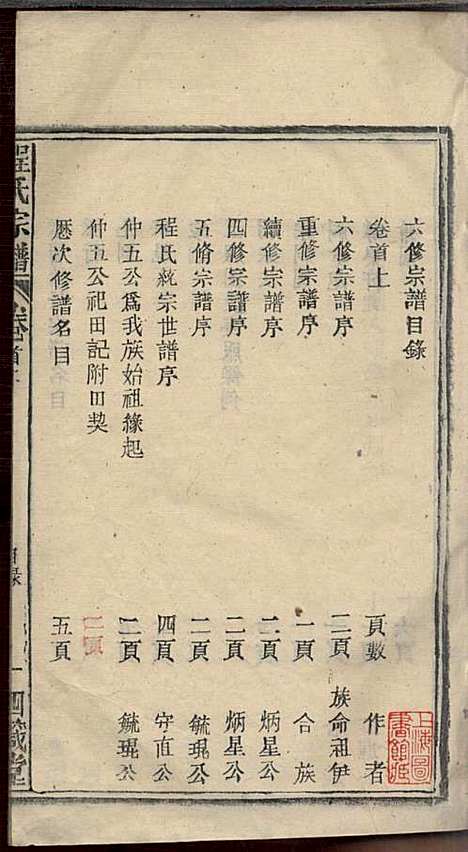 六修宗譜目錄
卷首上 頁數 作者
六修宗譜序 二頁 族命祖伊
重修宗譜序 一頁 合族
續修宗譜序 二頁 炳星公
四修宗譜序 二頁 炳星公
五脩宗譜序 二頁 毓琨公
程氏統宗世譜序 四頁 守直公
仲五公爲我族始祖緣起 二頁 毓琨公
仲五公祀田記附田契 二頁
歷次修譜名目 五頁
程氏宗譜 卷首 目錄 一
上海圖書館藏